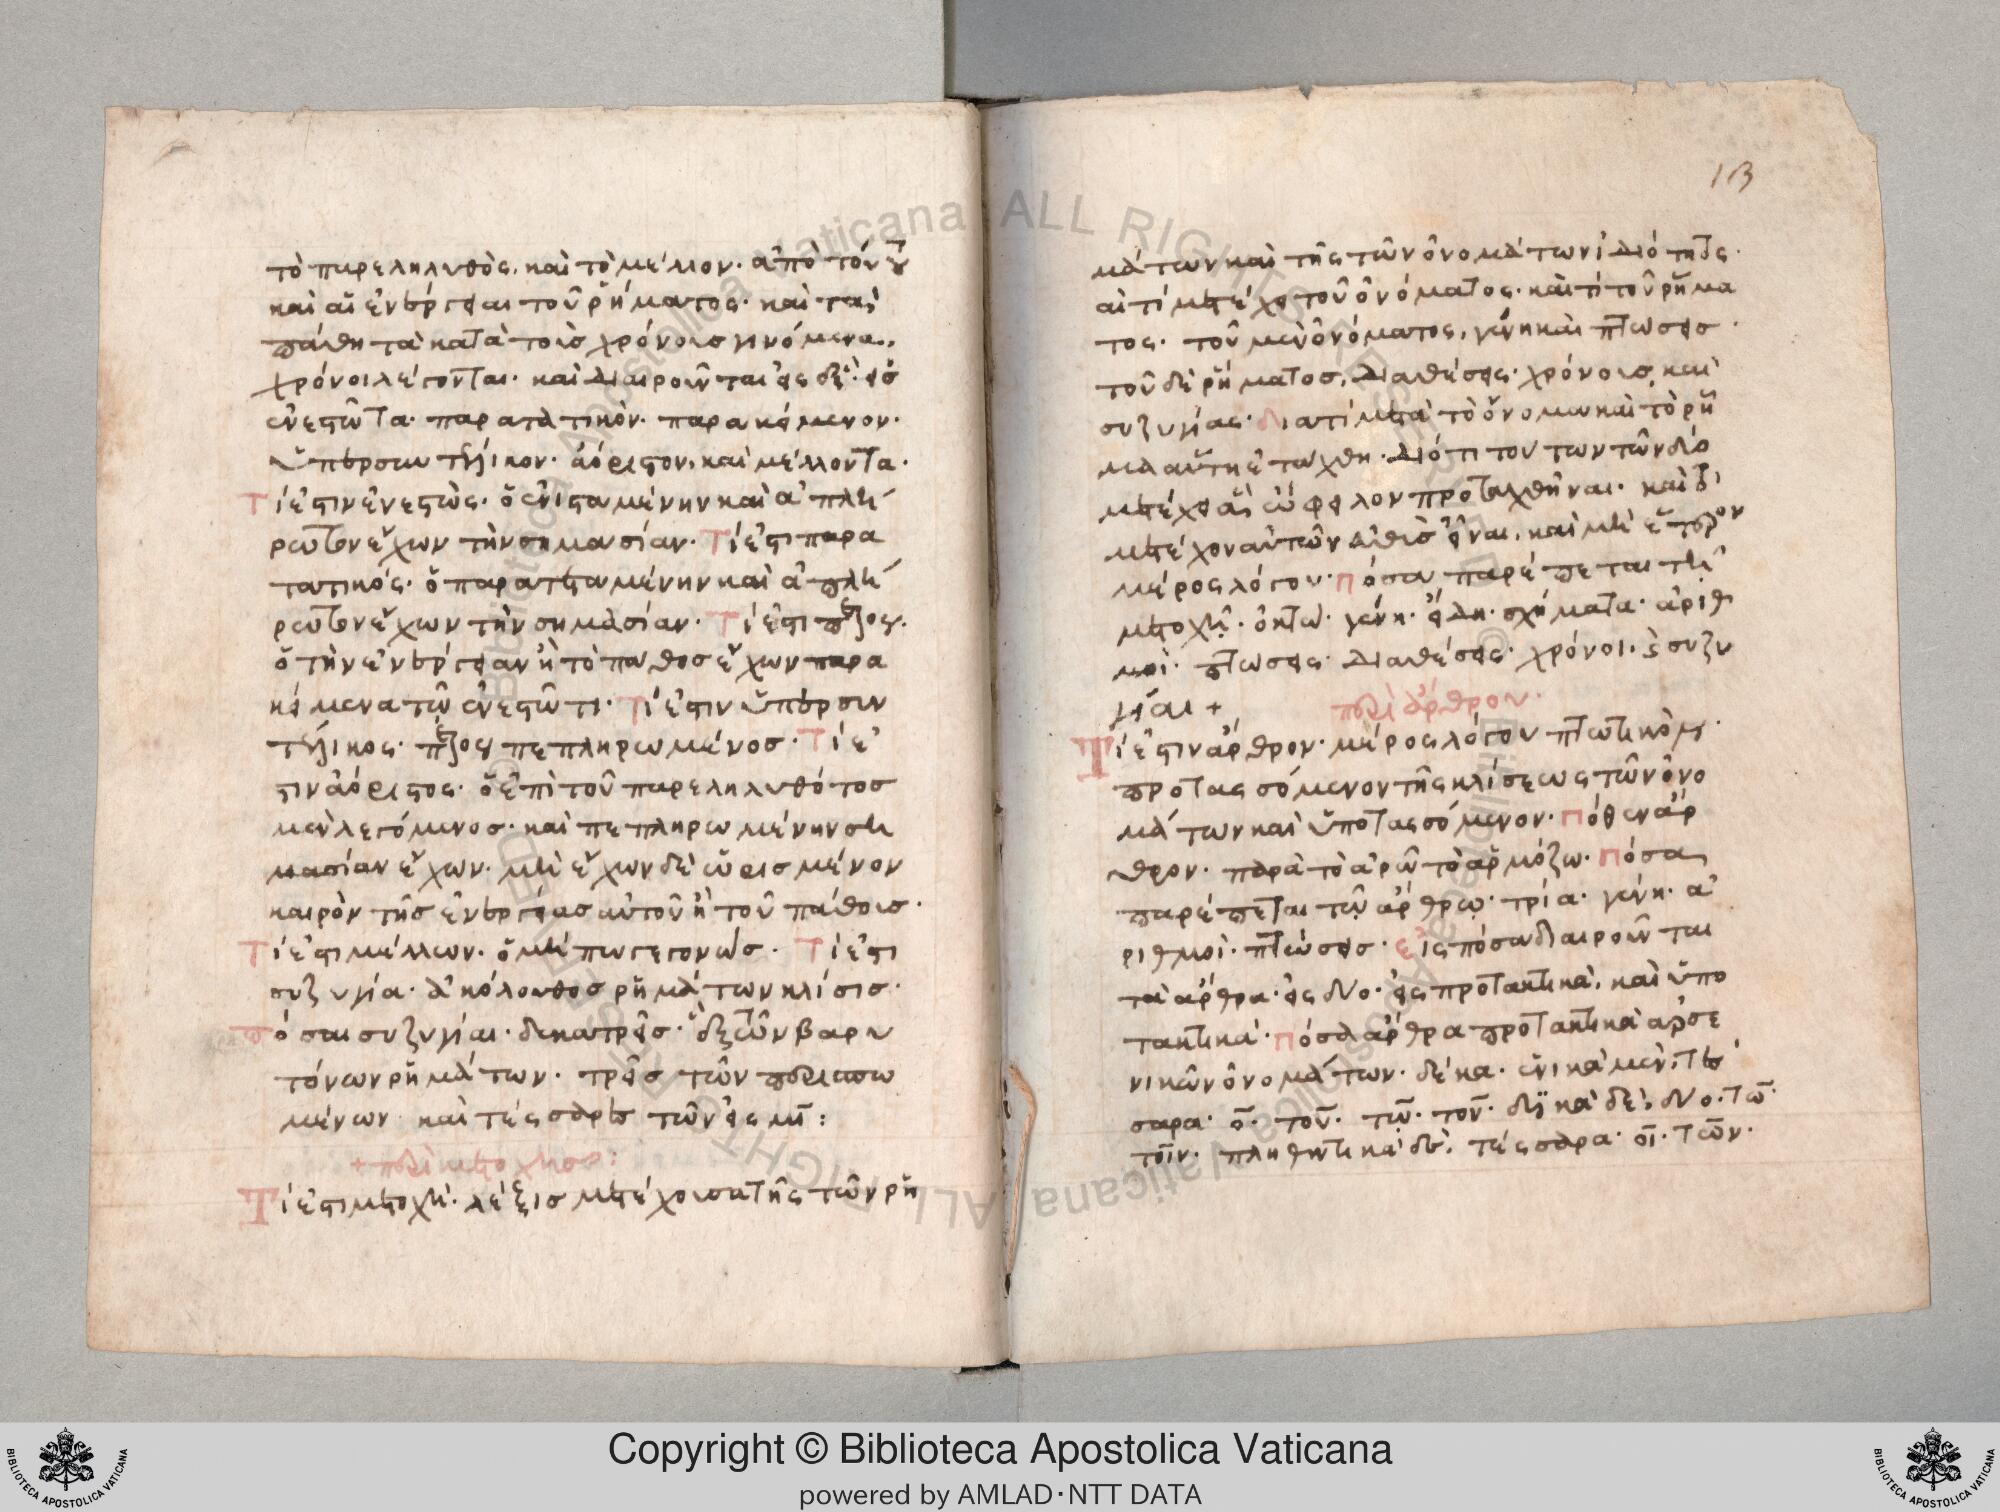 τὸ παρεληλυθὸς. καὶ τὸ μέλλον. ἀπὸ τούτου
καὶ αἱ ἐνέργειαι τοῦ ῥήματος. καὶ τὰ
πάθη τὰ κατὰ τοὺς χρόνους γινόμενα.
χρόνοι λέγονται. καὶ διαιροῦνται εἰς
ἐνεστῶτα. παρατατικὸν. παρακείμενον.
ὑπερσυντέλικον. ἀόριστον. καὶ μέλλοντα.
Τί ἐστιν ἐνεστὼς. ὁ ἐνισταμένην καὶ ἀπλή
ρωτον ἔχων τὴν σημασίαν. Τί ἐστι παρα
τατικός. ὁ παρατεταμένην καὶ ἀπλή
ρωτον ἔχων τὴν σημασίαν. Τί ἐστι
ὁ τὴν ἐνέργειαν ἢ τὸ παθος ἔχων παρα
κείμενα τῶ ἐνεστῶτι. Τί ἐστιν ὑπερσυν
τέλικος. πεπληρωμένος. Τί ἐ
στιν ἀόριστος. ὁ ἐπὶ τοῦ παρεληλυθότος
μὲν λεγόμενος. καὶ πεπληρωμένην ση
μασίαν ἔχων. μὴ ἔχων δὲ ὡρισμένον
καιρὸν τῆς ἐνεργείας αὐτοῦ ἢ τοῦ πάθους.
Τί ἐστι μέλλων. ὁ μήπω γεγονώς. Τί ἐστι
συζυγία. ἀκόλουθος ῥημάτων κλίσις.
Πόσαι συζυγίαι. δεκατρεῖς. ἓξ τῶν βαρυ
τόνων ῥημάτων. τρεῖς τῶν περισπω
μένων καὶ τέσσαρες τῶν εἰς μι:
+ περὶ μετοχῆς:
Τί ἐστι μετοχή. λέξις μετέχουσα τῆς τῶν ῥη
13
μάτων καὶ τῆς τῶν ὀνομάτων ἰδιότητος.
τί μετέχει τοῦ ὀνόματος. καὶ τί τοῦ ῥήμα
τος. τοῦ μὲν ὀνόματος, γένη καὶ πτώσεις.
τοῦ δὲ ῥήματος, διαθέσεις. χρόνους, καὶ
συζυγίας. διατί μετὰ τὸ ὄνομα καὶ τὸ ῥῆ
μα αὕτη ἐτάχθη. διότι τούτων τῶν δύο
μετέχει ὤφειλον προταχθῆναι. καὶ
μετέχον αὐτῶν εὐθὺς εἶναι, καὶ μὴ ἕτερον
μέρος λόγου. πόσα παρέπεται τῇ
μετοχῇ. ὀκτώ. γένη. εἴδη. σχήματα. ἀριθ
μοὶ. πτώσεις. διαθέσεις. χρόνοι. ϛ συζυ
γίαι +
περὶ ἄρθρου.
Τί ἐστιν ἄρθρον. μέρος λόγου πτωτικὸν
προτασσόμενον τῆς κλίσεως τῶν ὀνο
μάτων καὶ ὑποτασσόμενον. πόθεν ἄρ
θρον. παρὰ τὸ ἀρῶ τὸ ἁρμόζω. πόσα
παρέπεται τῷ ἄρθρῳ. τρία. γένη. ἀ
ριθμοὶ. πτώσεις. εἰς πόσα διαιροῦνται
τὰ ἄρθρα. εἰς δύο. εἰς προτακτικὰ, καὶ ὑπο
τακτικά. πόσα ἄρθρα προτακτικὰ ἀρσε
νικῶν ὀνομάτων. δέκα. ἑνικὰ μὲν, τέσ
σαρα. ὁ. τοῦ. τῷ. τὸν. δυϊκὰ δὲ, δύο. τὼ.
τοῖν. πληθυντικὰ δὲ, τέσσαρα. οἱ. τῶν.